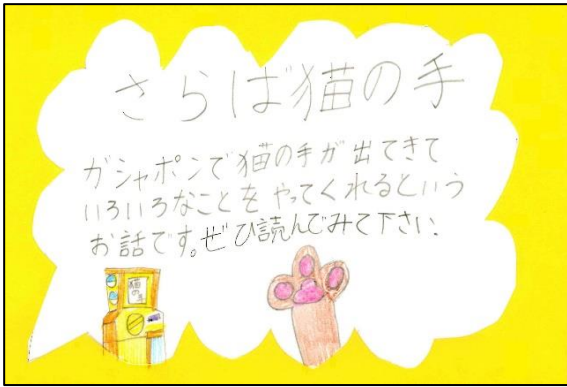 さらば猫の手
ガシャポンで猫の手が出てきて
いろいろなことをやってくれるという
お話です。ぜひ読んでみて下さい。
猫の手